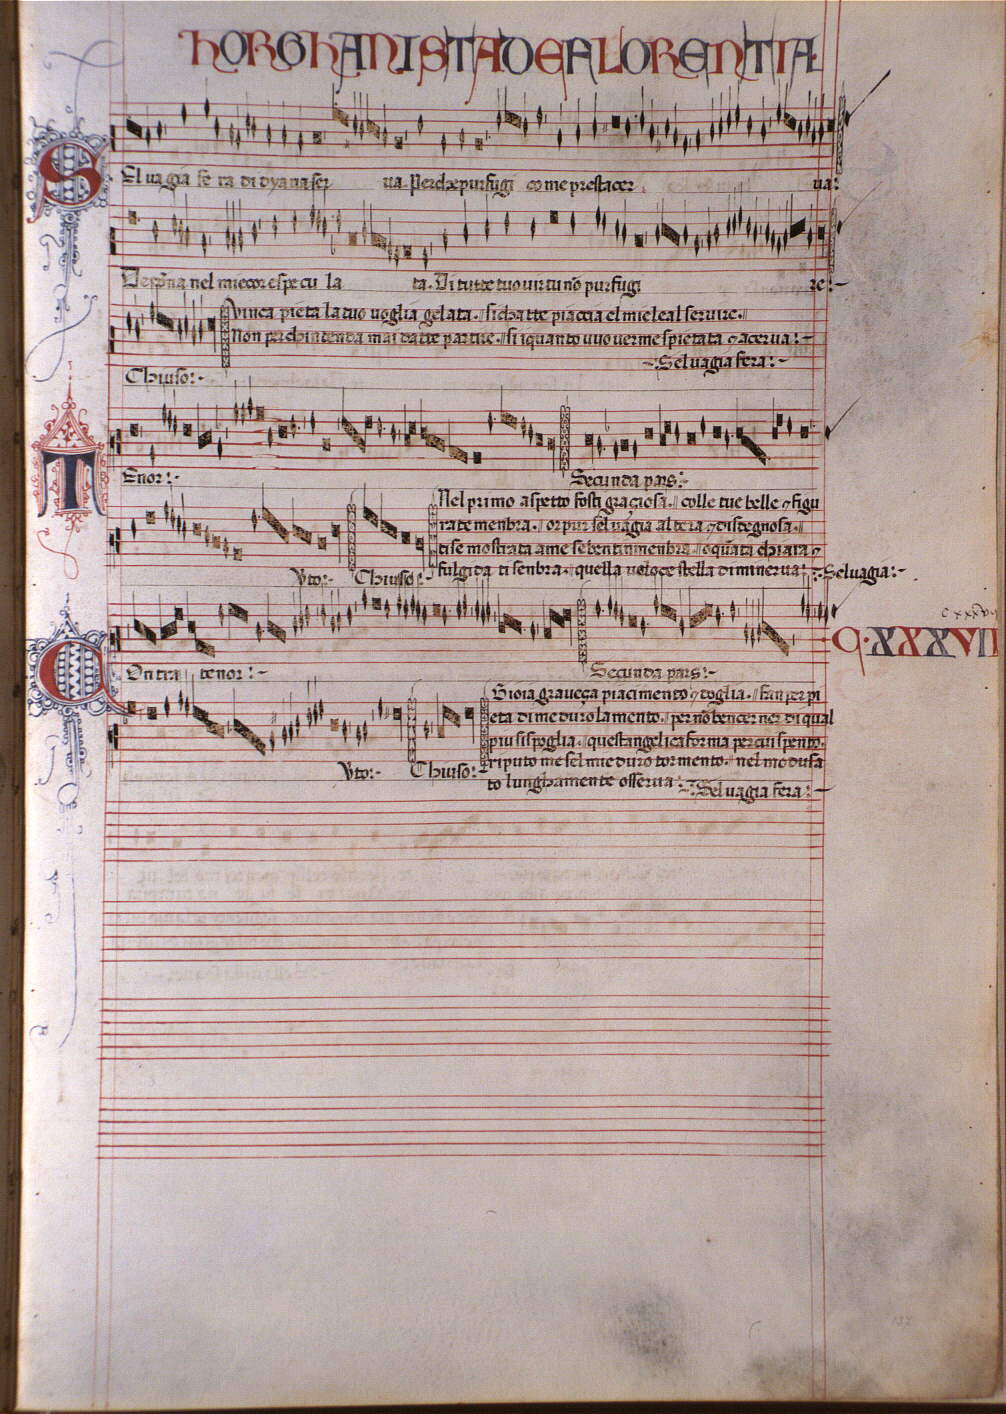 HORGHANISTA DE FLORENTIA
Selvagia fera di dyana ser va. Perche pur fugi come prestacer va:
Vesegna nel mie core specula ta. Di tutte tuo virtu nõ pur fugi re:
Vinca pieta la tuo voglia gelata. si chatte piaccia el mie leal servire.
Non perch intenda mai da tte partire. si iquanto vivo verme spietata acerva:
Selvagia fera:
Chiuso:
Tenor:
Secunda pars:
Nel primo aspetto fosti graçiosa. colle tue belle figu
rate menbra. or pur selvagia altera disdegnosa.
ti se mostrata a me se ben ti rimenbra. quãta chiara
fulgida ti senbra. quella veloce stella di minerva:
Selvagia:
Vto:
Chiusso:
Contra tenor:
Secunda pars:
C·XXXVII
Gioia graveça piacimento doglia. fan per pi
eta di me duro lamento. per nõ bencerner di qual
piu si spoglia. quest angelica forma per cui spento.
riputo me sel mie duro tormento. nel mo dusa
to lunghamente osserva:
Selvagia fera:
Vto:
Chiuso: